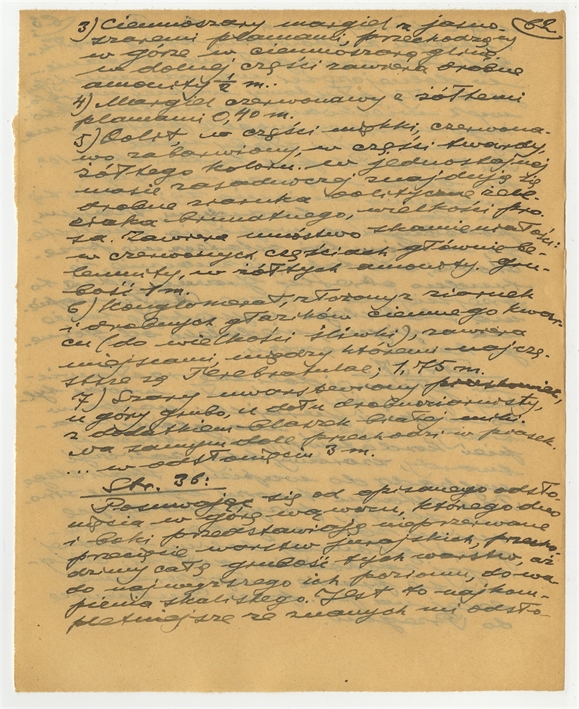 62
3) Ciemnoszary margiel z jasno-
szaremi plamami, przechodzący
w górze w ciemnoszarą glinę
w dolnej części zawiera drobne
amonity ½ m.
4) Margiel czerwonawy z żółtemi
plamami 0,40 m.
5) Oolit w części miękki, czerwona-
wo zabarwiony, w części twardy,
żółtego koloru. W jednostajnej
masie zasadniczej znajdują się
drobne ziarnka oolityczne żela-
ziaka brunatnego, wielkości pro-
sa. Zawiera mnóstwo skamieniałości:
w czerwonych częściach głównie be-
lemnity, w żółtych amonity. Gru-
bość 1 m.
6) Konglomerat, złożony z ziarnek
i drobnych głazików ciemnego kwar-
cu (do wielkości śliwki), zawiera
miejscami, między któremi najczę-
stsze są Terebratulae, 1,75 m.
7) Szary uwarstwiony piaskowiec,
u góry grubo, u dołu drobnoziarnisty,
z dodatkiem blaszek białej miki.
Na samym dole przechodzi w piasek.
... w odsłonięciu 3 m.
Str. 36:
Posuwając się od opisanego odsło-
nięcia w górę wąwozu, którego dno
i boki przedstawiają nieprzerwane
przecięcie warstw jurajskich, przecho-
dzimy całą grubość tych warstw, aż
do najwyższego ich poziomu, do wa-
pienia skalistego. Jest to najkom-
pletniejsze ze znanych mi odsło-